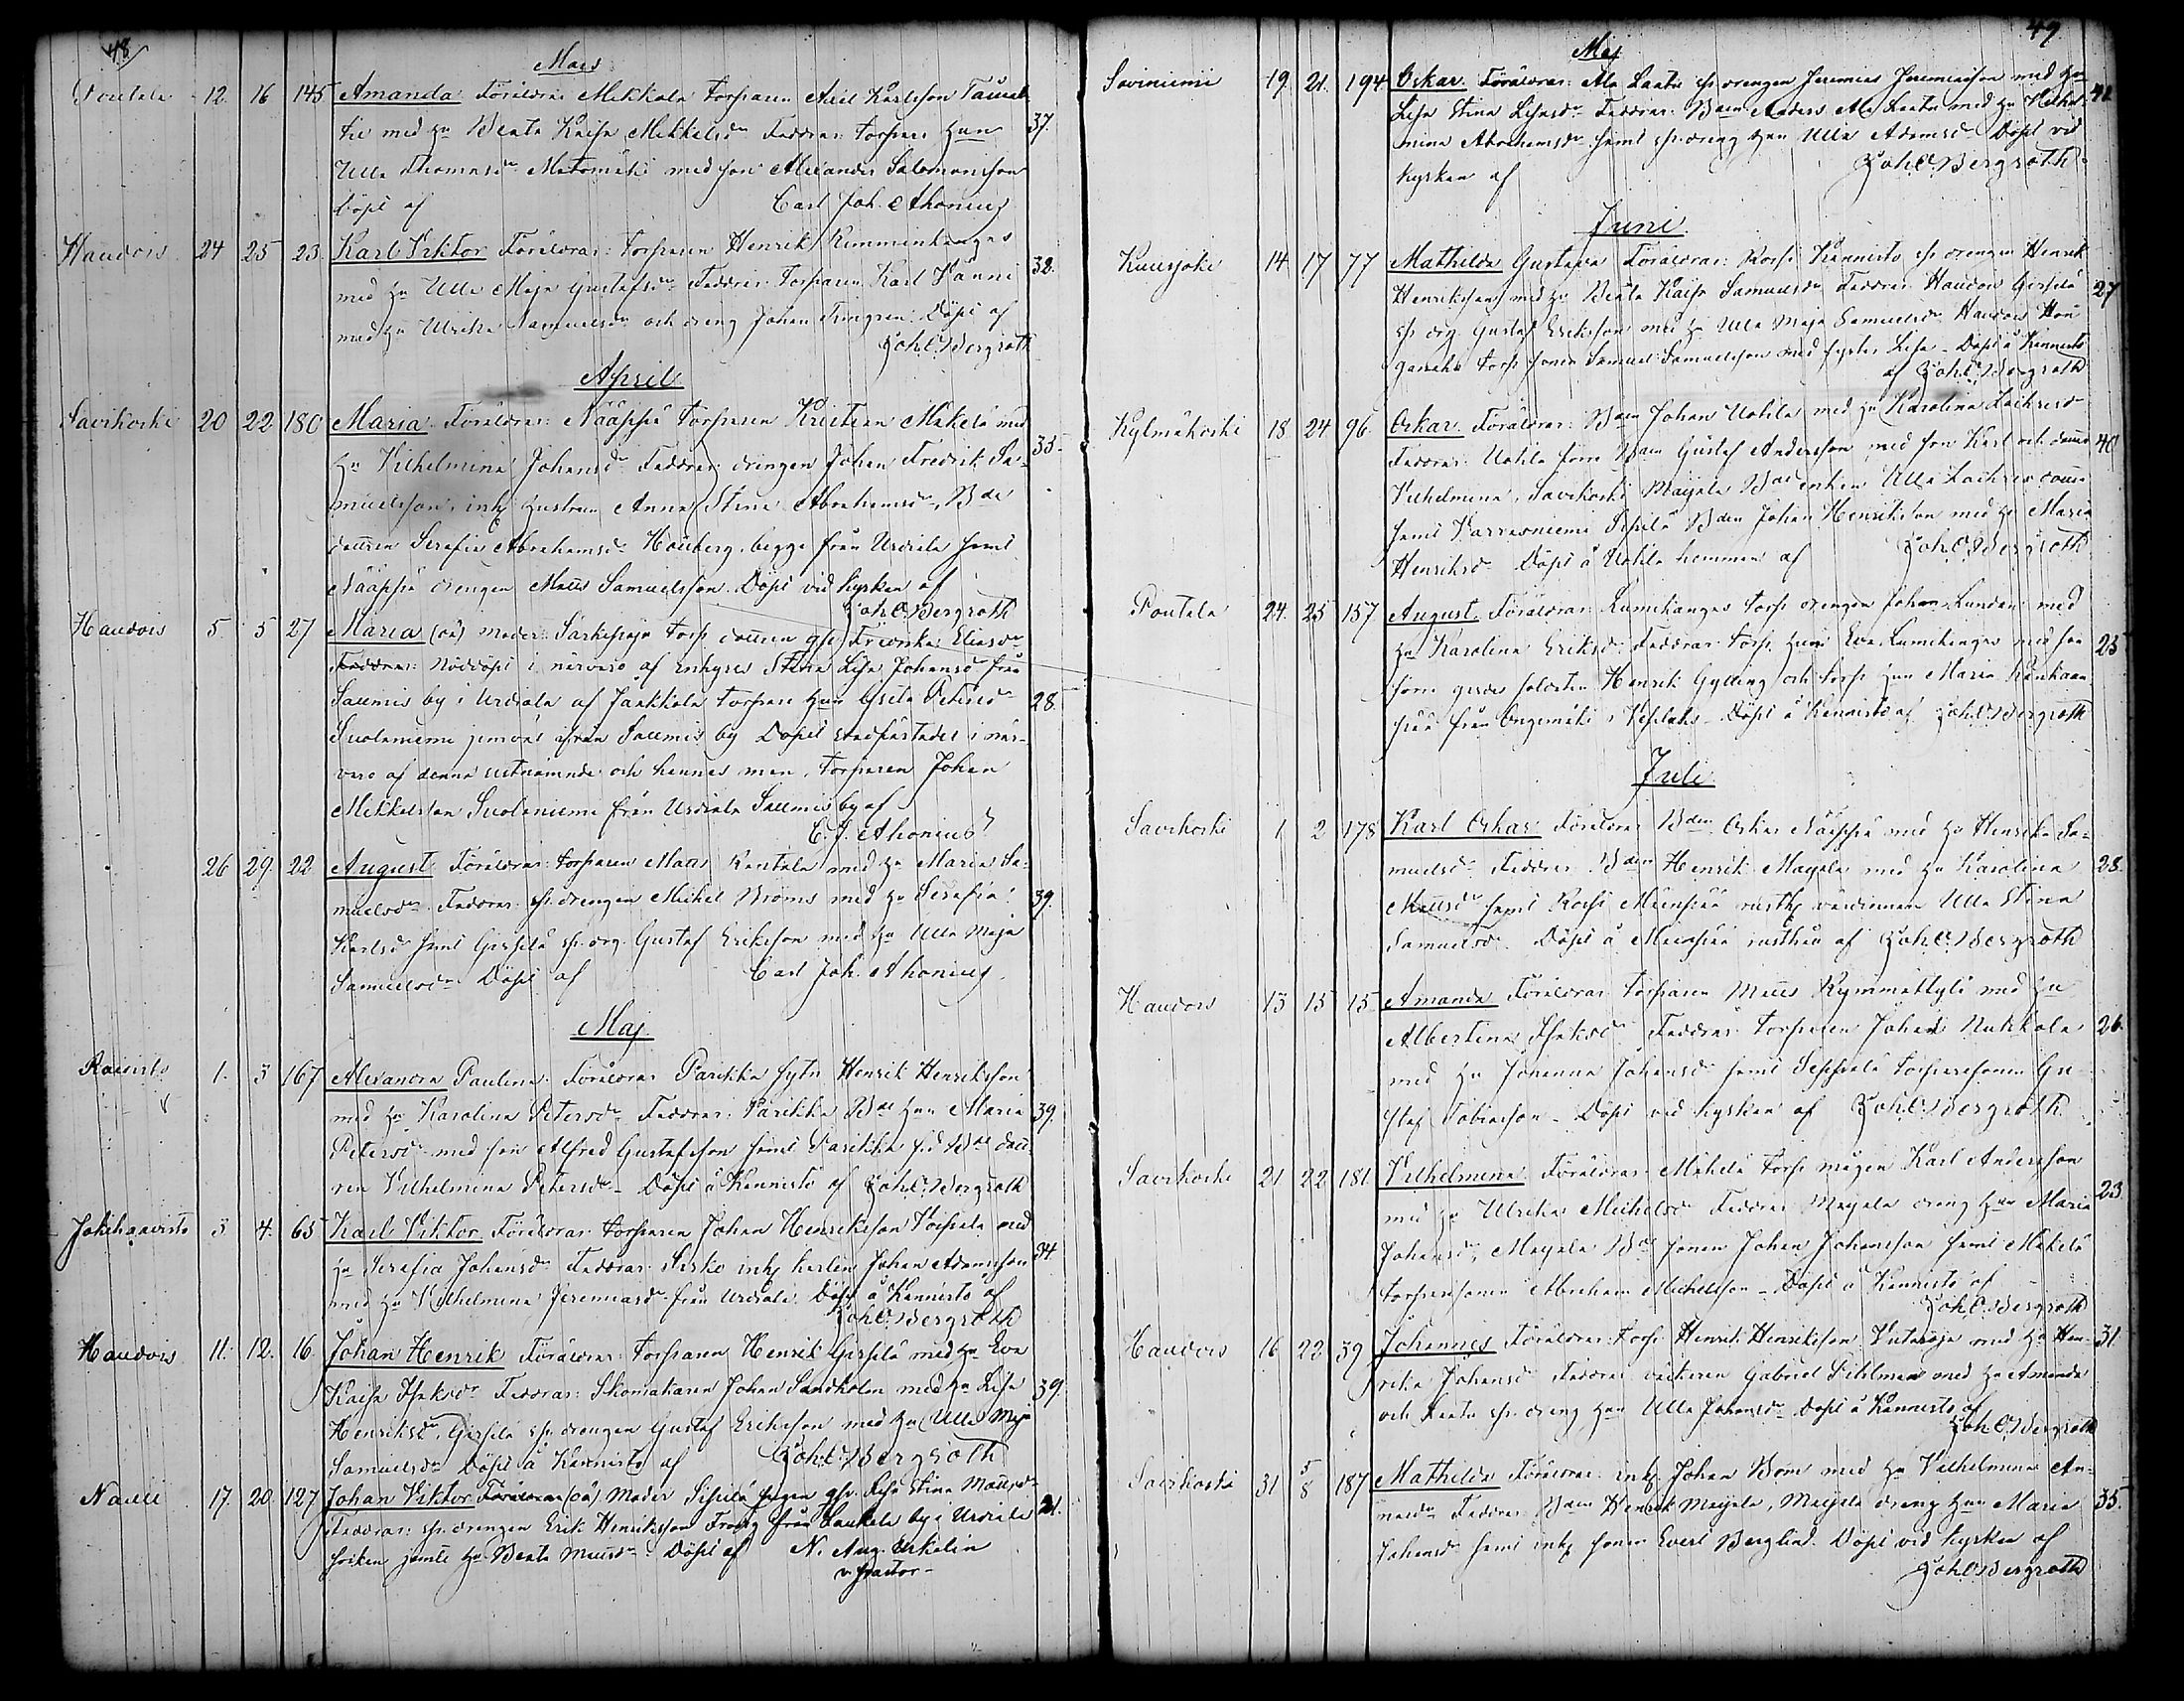 48
Mars
Pontela 12. 16 145 Amanda Föräldrar Mikkola torparen Axel Karlsson
med Hu Beata Kaisa Mikkelsdr Faddrar: torpare Hun 37.
Ulla Thomasdr Matomäki med son Alexander Salomonsson
Döpt af Carl Joh. Ahonius
Haudois 24 25 23 Karl Viktor Föräldrar: torparen Henrik Rimminkangas 32.
med Hu Ulla Maja Gustafsdr Faddrar: Torparen Karl Vänni
med Hu Ulrika Samuelsdr och dreng Johan Döpt af
Joh. C. Bergroth
April
Savikoski 20 22 180 Maria Föräldrar: Nääppä torparen Kristian Mäkelä med
Hu Vilhelmina Johansdr Faddrar: drengen Johan Fredrik Sa- 35.
muelsson, inh hustrun Anna Stina Abrahamsdr, Bde
dottren Serafia Abrahamsdr begge från Urdiala samt
Nääppä drengen Matts Samuelsson. Döpt vid kyrkan af
Joh. C. Bergroth
Haudois 5. 5 27 Maria (oä) moder: torp dottren Fredrika Eliasdr
Faddrar: Nöddöpt i närvaro af inhyses Stina Lisa Johansdr från
Salmis by i Urdiala af Jaakkola torpare Hun Greta Petersdr 28.
Suolaniemi jemväl från Salmis by Dopet stadfästades i när-
varo af denna sistnämnde och hennes man, torparen Johan
Mikkelsson Suolaniemi från Urdiala Salmis by af
C. J. Ahonius
26 29. 22 August Föräldrar: torparen Matts Rantala med Hu Maria Sa-
muelsdr Faddrar: sp. drengen Mikel Broms med Hu Serafia 39.
Karlsdr samt Girsilä sp. drg. Gustaf Eriksson med Hu Ulla Maja
Samuelsdr Döpt af Carl Joh. Ahonius
Maj
Raivisto 1. 3 167 Alexandra Paulina. Föräldrar Parikka sytn Henrik Henriksson
med Hu Karolina Petersdr Faddrar: Parikka Bde Hun Maria 39.
Petersdr med son Alfred Gustafsson samt Parikka Bde dott
ren Vilhelmina Petersdr - Döpt å Kannisto af Joh. C. Bergroth
Jokihaavisto 3 4. 65 Karl Viktor Föräldrar torparen Johan Henriksson med
Hu Serafia Johansdr Faddrar: inh karlen Johan Adamsson 34
med Hu Vilhelmina Jeremiasdr från Urdiala. Döpt å Kannisto af
Joh. C. Bergroth
Haudois 11. 12. 16. Johan Henrik Föräldrar: torparen Henrik Girsilä med Hu Eva
Kaisa Isaksdr Faddrar: Skomakaren Johan Sandholm med Hu Lisa 39.
Henriksdr, Girsilä sp. drengen Gustaf Eriksson med Hu Ulla Maja
Samuelsdr Döpt å Kannisto af Joh. C. Bergroth
Nauli 17. 20. 127 Johan Viktor Föräldrar (oä) Moder Sipilä pigan Lisa Stina Mattsdr
Faddrar: sp. drengen Erik Henriksson från Laukela by i Urdiala 21.
socken jemte Hu Beata Mattsdr Döpt af N. Aug. Arkelin
v. pastor -
49
Maj
Soviniemi 19. 21. 194 Oskar. Föräldrar: Ala Laato sp. drengen Jeremias Jeremiasson med Hu 42
Lisa Stina Faddrar: Bden Anders Ala Laato med Hu Vilhel-
mina Abrahamsdr samt sp. dreng Hun Ulla Adamsdr Döpt vid
kyrkan af Joh. C. Bergroth
Juni
Kuusjoki 14 17 77 Mathilda Gustava Föräldrar: Rossi Kannisto sp. drengen Henrik
Henriksson med Hu Beata Kaisa Samuelsdr Faddrar Haudois Girsilä 27
sp drg Gustaf Eriksson med Hu Ulla Maja Samuelsdr Haudois
torp sonen Samuel Samuelsson med syster Lisa - Döpt å Kannisto
af Joh. C. Bergroth
Kylmäkoski 18 24 96. Oskar. Föräldrar: Bden Johan Uotila med Hu Karolina
Faddrar: Uotila förre Bden Gustaf Andersson med son Karl och dotter 40
Vilhelmina, Savikoski Maijala Bde enkan Ulla
samt Varrasniemi Sipilä Bden Johan Henriksson med Hu Maria
Henriksdr Döpt å Uotila hemman af Joh. C. Bergroth
Pontela 24. 25 157 August. Föräldrar: torp drengen Johan med
Hu Karolina Eriksdr Faddrar: torp. Hun Eva med son 25
förre gardes soldaten Henrik Gylling och torp Hun Maria
från i Döpt å Kannisto af Joh. C. Bergroth
Juli
Savikoski 1 2 178 Karl Oskar Föräldrar Bden Oskar Nääppä med Hu Henrika Sa-
muelsdr Faddrar Bden Henrik Maijala med Hu Karolina 28.
Mattsdr samt Rossi värdinnan Ulla Stina
Samuelsdr. Döpt å af Joh. C. Bergroth
Haudois 13 15 15 Amanda Föräldrar torparen Matts Kymmättylä med Hu
Albertina Isaksdr Faddrar torparen Johan Nukkola 26.
med Hu Johanna Johansdr samt Seppälä torparesonen Gu-
staf Tobiasson - Döpt vid kyrkan af Joh. C. Bergroth
Savikoski 21 22 181. Vilhelmina Föräldrar Mäkelä torp mågen Karl Andersson
med Hu Ulrika Michelsdr Faddrar Maijala dreng Hun Maria 23
Johansdr, Maijala Bde sonen Johan Johansson samt Mäkelä
torparesonen Abraham Michelsson - Döpt å Kannisto af
Joh. C. Bergroth
Haudois 16 22 39 Johannes Föräldrar: torp. Henrik Henriksson med Hu Hen- 31.
rika Johansdr Faddrar Gabriel med Hu Amanda
och Laato sp. dreng Hun Ulla Johansdr Döpt å Kannisto af
Joh. C. Bergroth
Savikoski 31 5/8 187 Mathilda Föräldrar inh Johan Bom med Hu Vilhelmina An-
Faddrar Bden Henrik Maijala, Maijala dreng Hun Maria 35.
Johansdr samt inh sonen Evert Berglind. Döpt vid kyrkan af
Joh. C. Bergroth